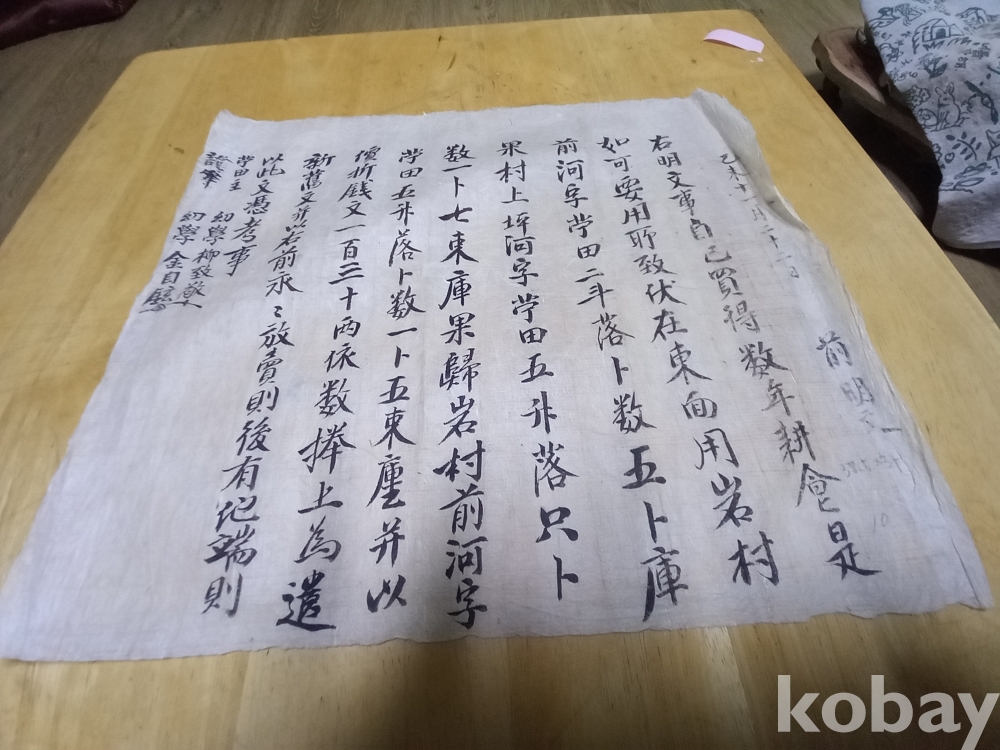 己未十一月二十一日 前明文
右明文事自己買得數年耕食是
如可要用所致伏在東面用岩村
前河字畓田二斗落卜数五卜庫
果村上坪河字畓田五升落只卜
数一卜七束庫果歸岩村前河字
畓田五升落卜数一卜五束庫并以
價折錢文一百三十両依数捧上為遣
新舊文并以右前永〻放賣則後有圯端則
以此文憑考事
畓田主 幼學 柳致敬
證筆 幼學 金自
10
kobay